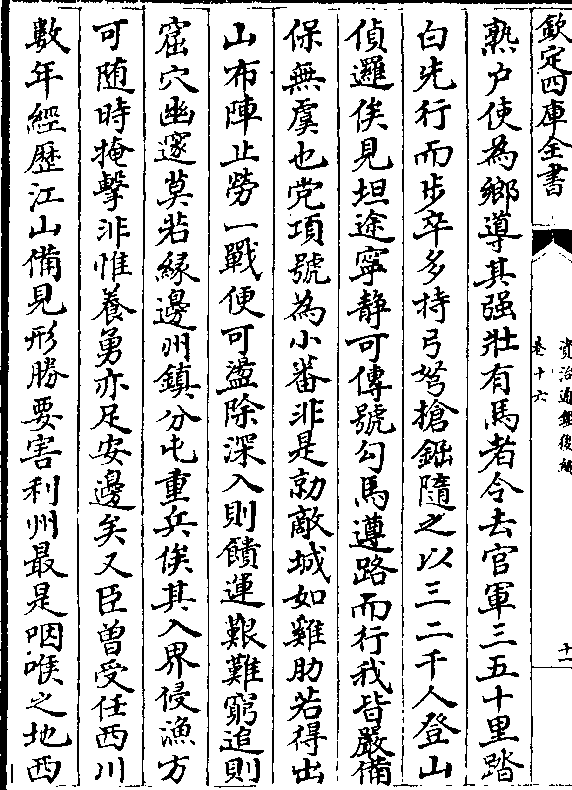 欽定四庫全書
資治通鑑後編
卷十六
十一
熟户使為鄉導其强壯有馬者令去官軍三五十里踏
白先行而步卒多持弓弩槍鋸隨之以三二千人登山
偵邏俟見坦途寧静可傳號勾馬遵路而行我皆嚴備
保無虞也党項號為小蕃非是勍敵城如雞肋若得出
山布陣止勞一戰便可盪除深入則饋運艱難窮追則
窟穴幽邃莫若緣邊州鎮分屯重兵俟其入界侵漁方
可随時掩擊非惟養勇亦足安邊矣又臣曽受任西川
數年經歴江山備見形勝要害利州最是咽喉之地西